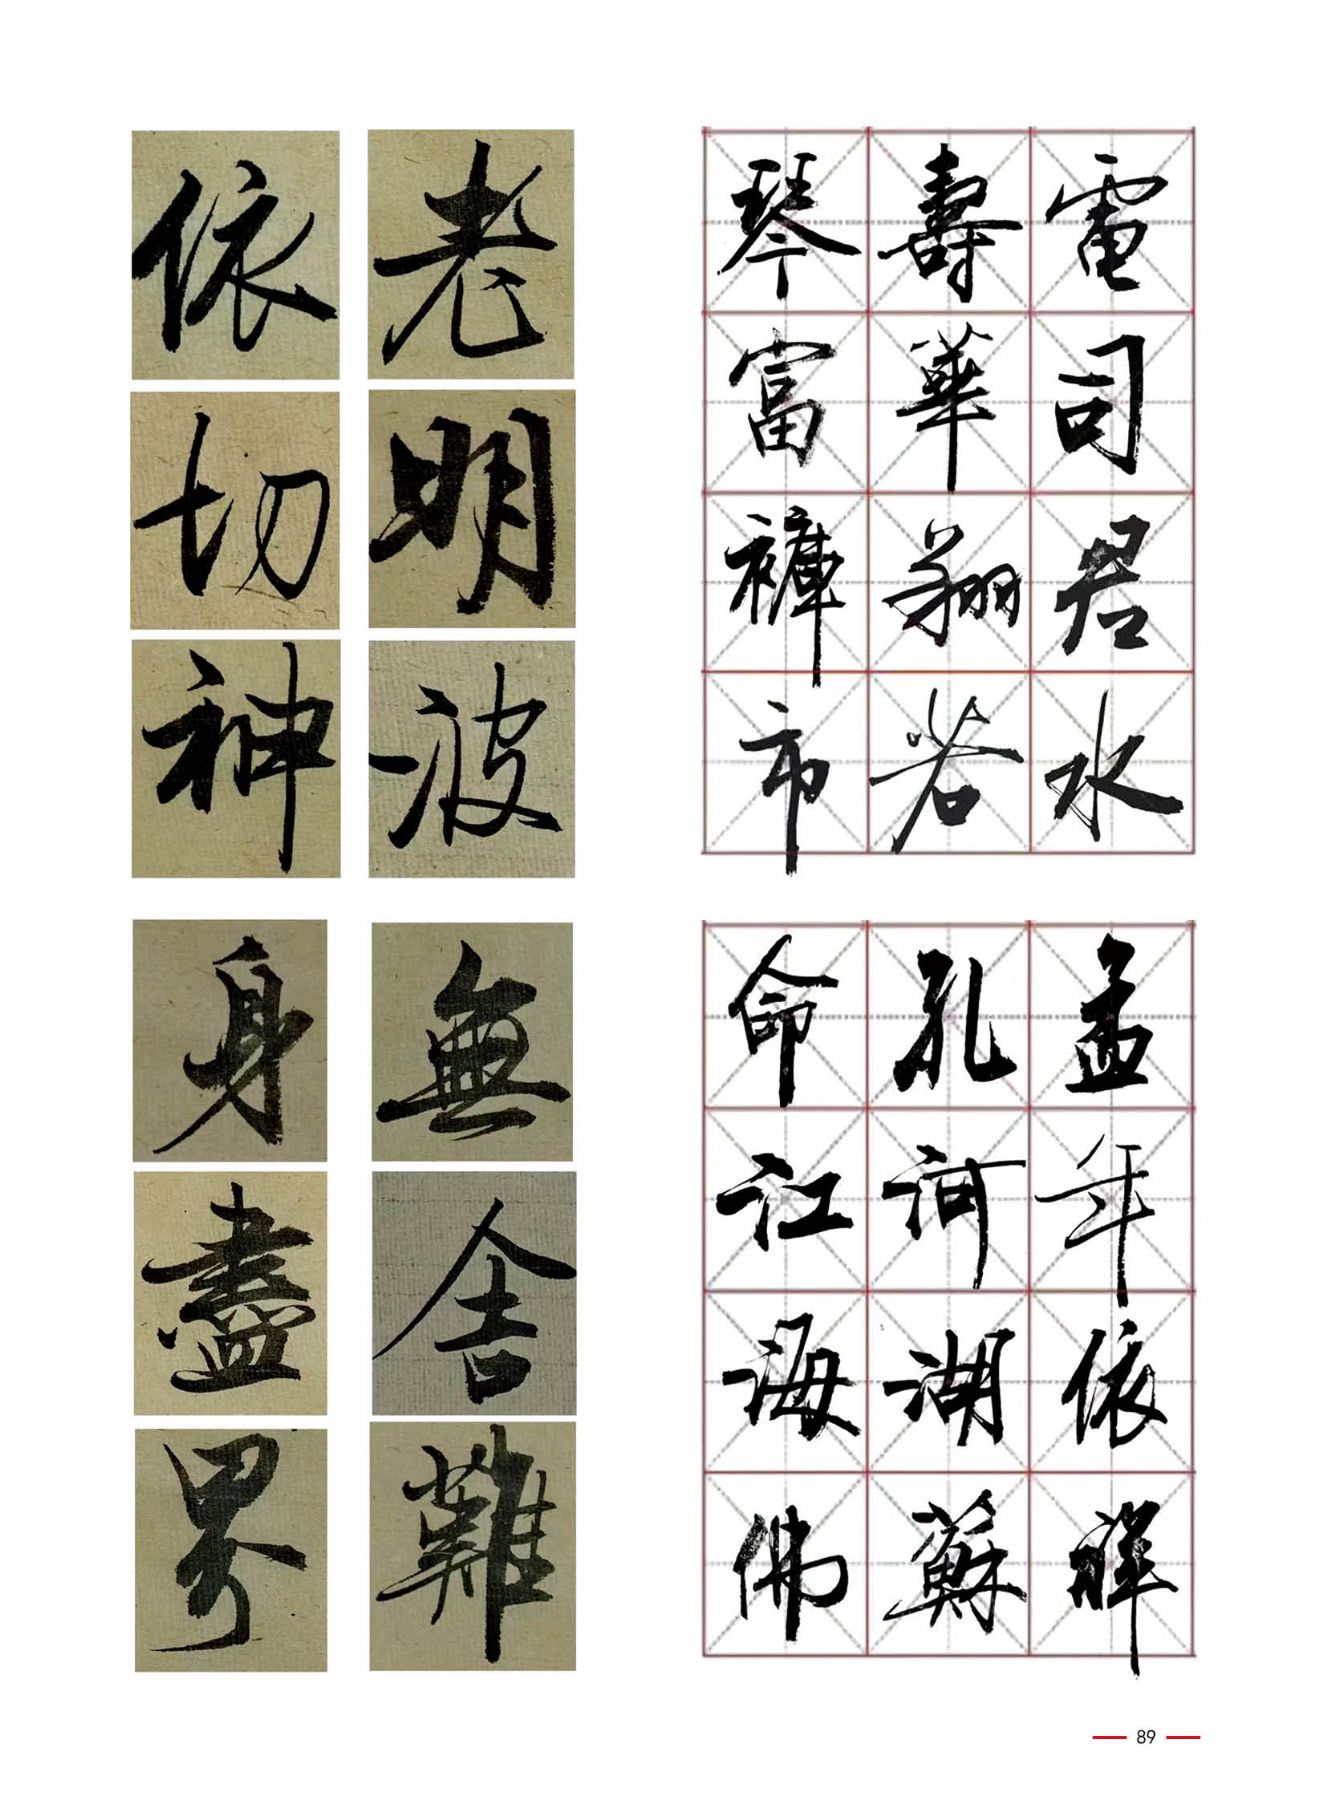 依 老
切 明
神 波
琴 壽 電
富 華 司
褲 翔 君
市 若 水
身 無
盡 舍
界 難
命 孔 孟
江 河 年
海 湖 依
佛 蘇 祥
89